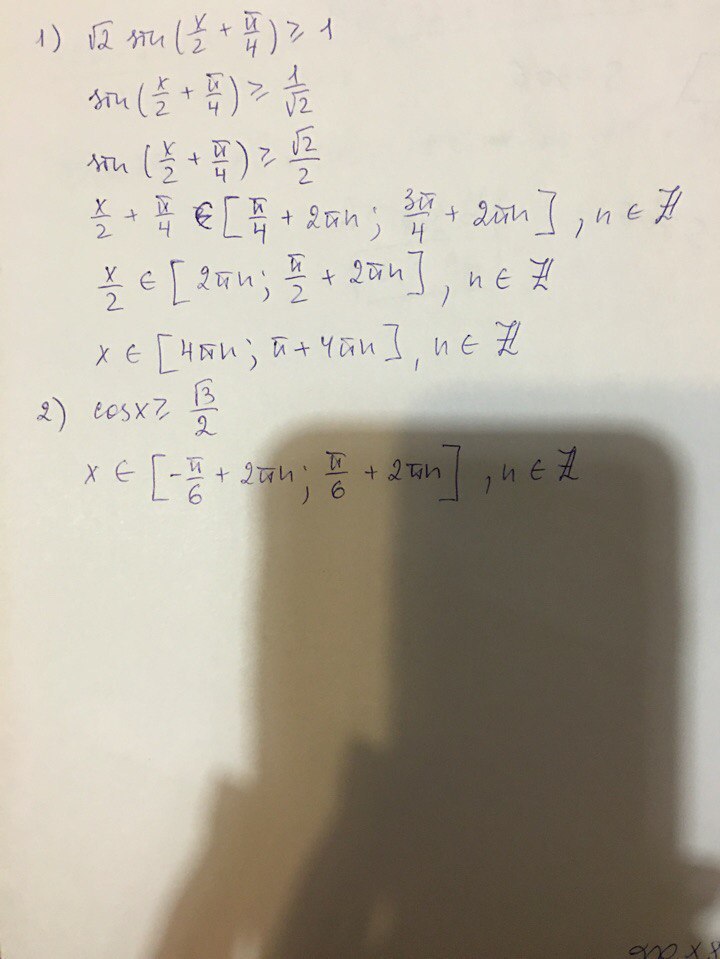 1) √2 sin(x/2 + π/4) ≥ 1
sin(x/2 + π/4) ≥ 1/√2
sin(x/2 + π/4) ≥ √2/2
x/2 + π/4 ∈ [π/4 + 2πn; 3π/4 + 2πn], n ∈ ℤ
x/2 ∈ [2πn; π/2 + 2πn], n ∈ ℤ
x ∈ [4πn; π + 4πn], n ∈ ℤ
2) cosx ≥ √3/2
x ∈ [-π/6 + 2πn; π/6 + 2πn], n ∈ ℤ